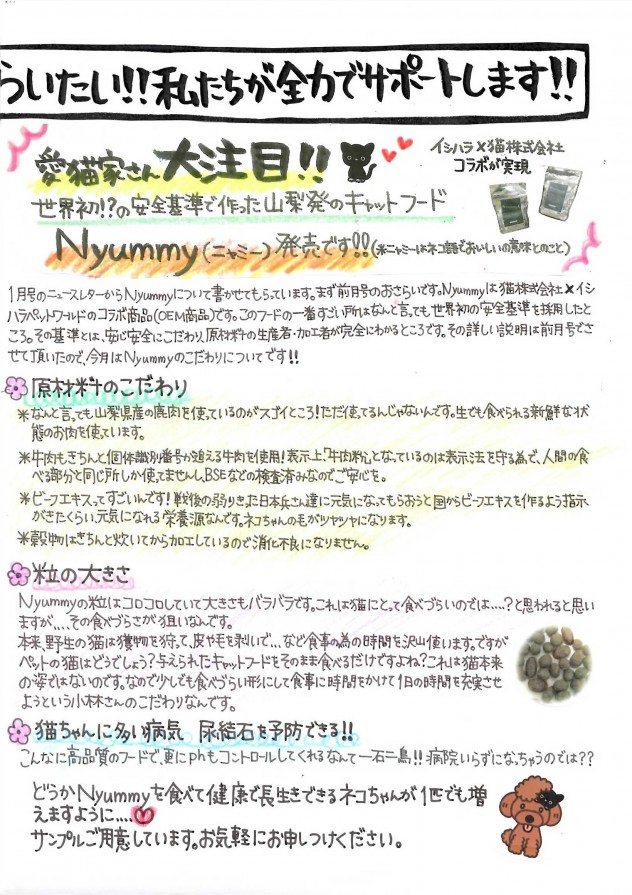 らいたい!!私たちが全力でサポートします!!
愛猫家さん大注目!!
イシハラ×猫株式会社
コラボが実現
世界初!?の安全基準で作った山梨発のキャットフード
Nyummy(ニャミー)発売です!!(※ニャミーはネコ語でおいしいの意味とのこと)
1月号のニュースレターからNyummyについて書かせてもらっています。まず前月号のおさらいです。Nyummyは猫株式会社×イシ
ハラペットワールドのコラボ商品(OEM商品)です。このフードの一番すごい所はなんと言っても世界初の安全基準を採用したと
ころ。その基準とは、安心安全にこだわり、原材料の生産者・加工者が完全にわかるところです。その詳しい説明は前月号でさ
せて頂いたので、今月はNyummyのこだわりについてです!!
原材料のこだわり
*なんと言っても山梨県産の鹿肉を使っているのがスゴイところ!ただ使ってるんじゃないんです。生でも食べられる新鮮な状
態のお肉を使ています。
*牛肉もきちんと個体識別番号が追える牛肉を使用!表示上「牛肉粉」となっているのは表示法を守る為で、人間の食
べる部分と同じ所しか使てませんし、BSEなどの検査済みなのでご安心を。
*ビーフエキスってすごいんです!戦後の弱りきった日本兵さん達に元気になってもらおうと国からビーフエキスを作るよう指示
がきたくらい、元気になれる栄養源なんです。ネコちゃんの毛がツヤツヤになります。
*穀物はきちんと炊いてから加工しているので消化不良になりません。
粒の大きさ
Nyummyの粒はコロコロしていて大きさもバラバラです。これは猫にとって食べづらいのでは....?と思われると思い
ますが....その食べづらさが狙いなんです。
本来、野生の猫は獲物を狩って、皮や毛を剥いで...など食事の為の時間を沢山使います。ですが
ペットの猫はどうでしょう?与えられたキャットフードをそのまま食べるだけですよね?これは猫本来
の姿ではないのです。なので少しでも食べづらい形にして食事に時間をかけて1日の時間を充実させ
ようという小林さんのこだわりなんです。
猫ちゃんに多い病気 尿結石を予防できる!!
こんなに高品質のフードで、更にphもコントロールしてくれるなんて一石二鳥!!病院いらずになちゃうのでは??
どうかNyummyを食べて健康で長生きできるネコちゃんが1匹でも増
えますように....
サンプルご用意しています。お気軽にお申しつけください。